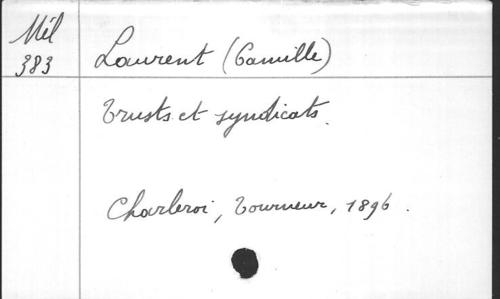 Mil
383
Laurent (Camille)
Trusts et syndicats.
Charleroi, Tourneur, 1896.